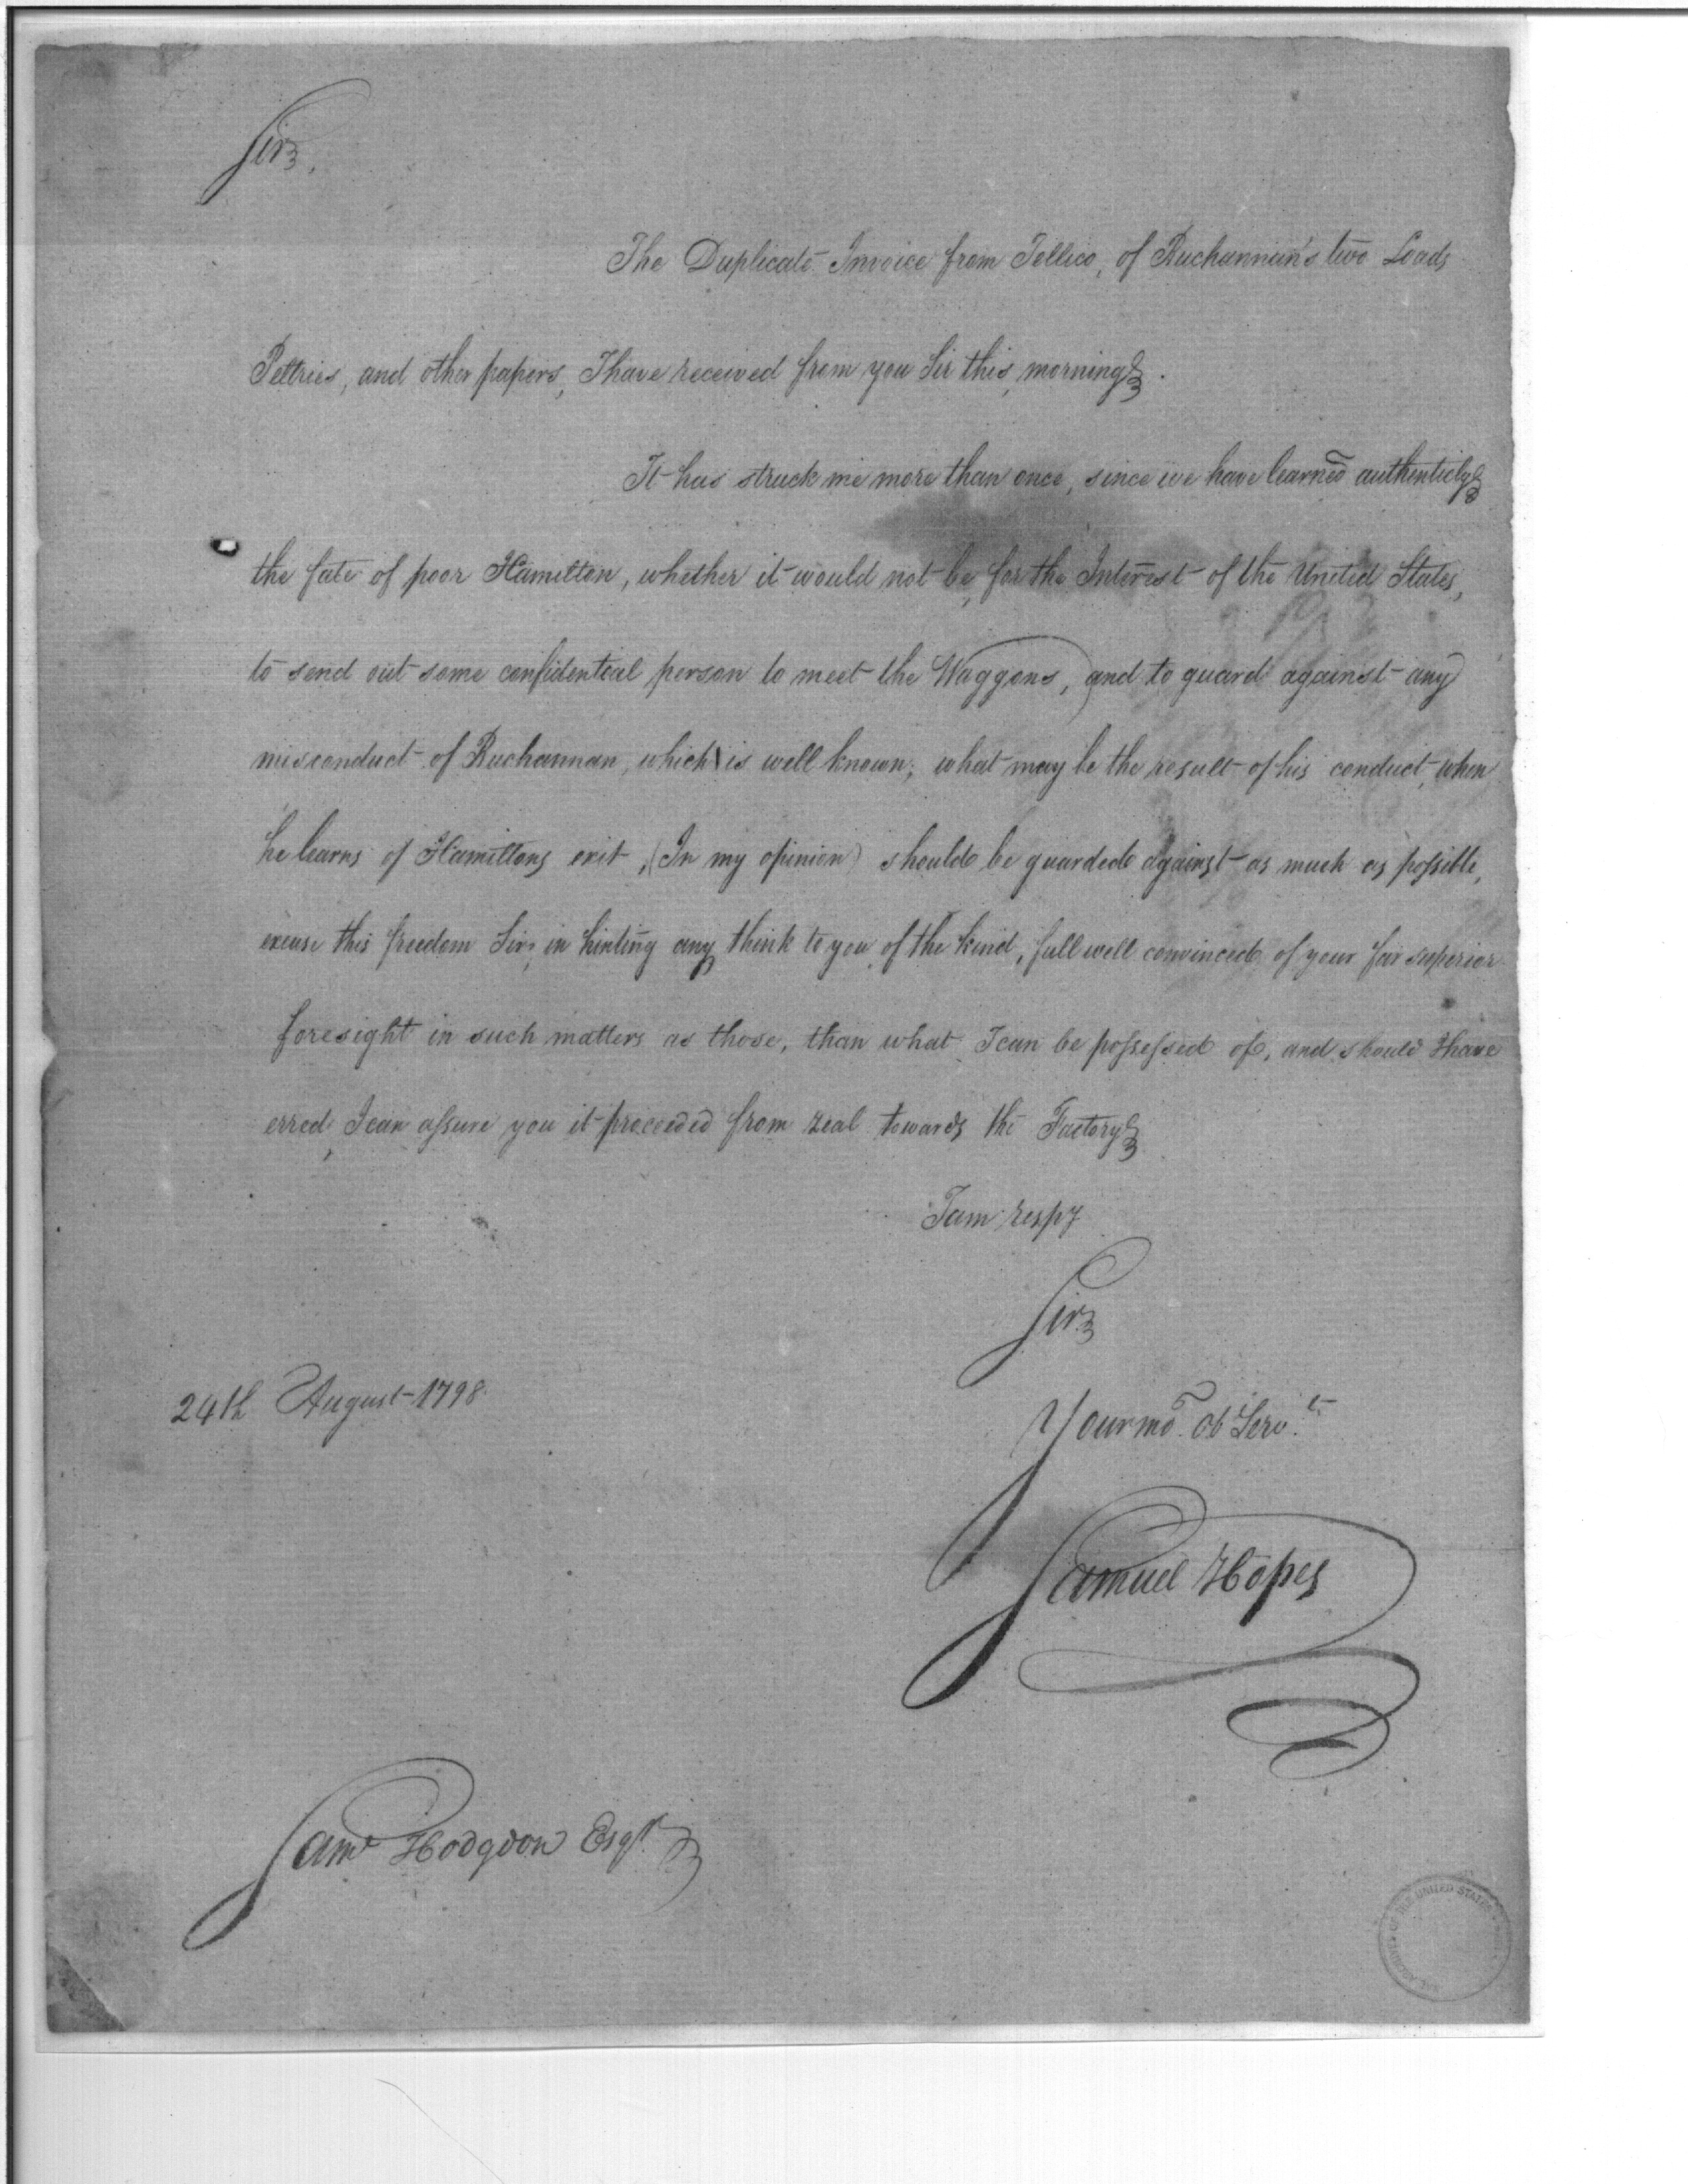 Sir,
The Duplicate Invoice from Tellico, of Buchannan's two Loads
Peltries, and other papers, I have received from you Sir this morning.
It has struck me more than once, since we have learned authenticly
the fate of poor Hamilton, whether it would not be, for the Interest of the United States,
to send out some confidential person to meet the Waggons, and to guard against any
misconduct of Buchannan, which is well known; what may be the result of his conduct, when
he learns of Hamiltons exit, (In my opinion) should be guarded against as much as possible,
excuse this freedom Sir, in hinting any think to you of the kind, full well convinced of your far superior
foresight in such matters as those, than what I can be possessed of, and should I have
erred, I can assure you it proceeded from zeal towards the Factory
I am respy
Sir
24th August 1798.
Your mo. Ob Servt
Samuel Hopes
Saml Hodgdon Esqr
OF THE UNITED STATES